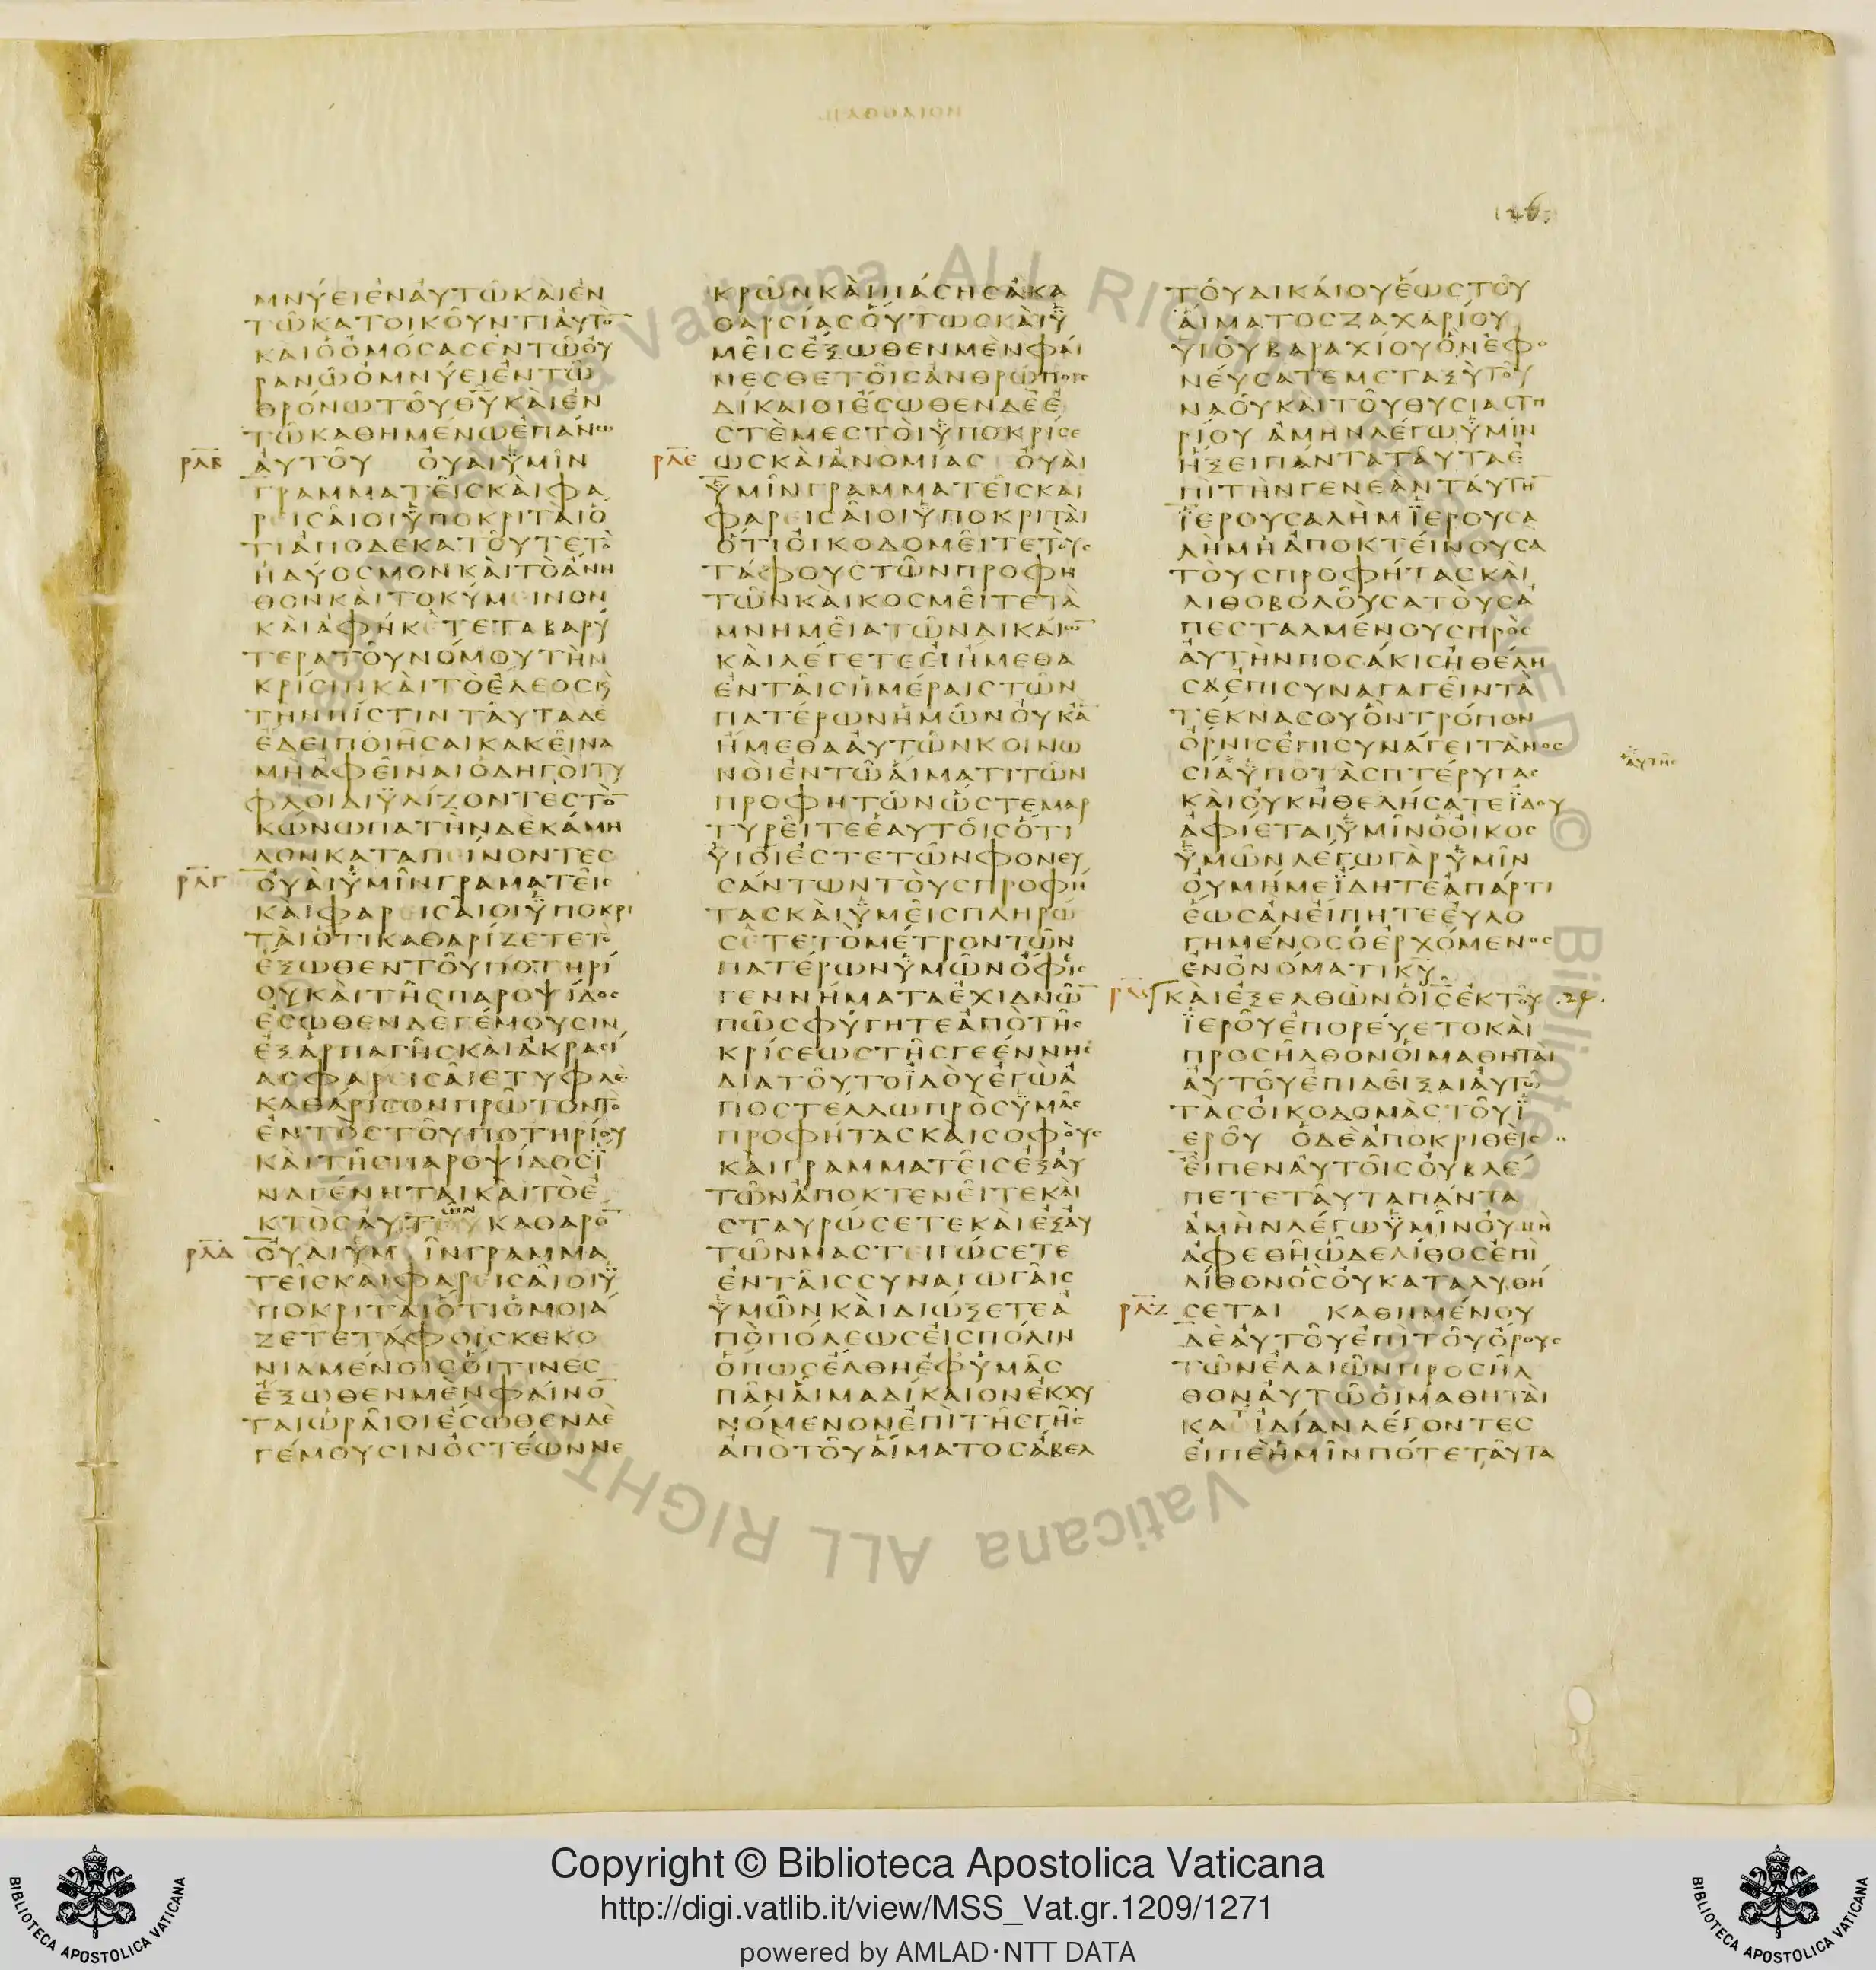 ΜΝΥΕΙΕΝΑΥΤΩΚΑΙΕΝ
ΤΩΚΑΤΟΙΚΟΥΝΤΙΑΥΤΟ̅
ΚΑΙΟΟΜΟΣΑΣΕΝΤΩΟΥ
ΡΑΝΩΟΜΝΥΕΙΕΝΤΩ
ΘΡΟΝΩΤΟΥΘ̅Υ̅ΚΑΙΕΝ
ΤΩΚΑΘΗΜΕΝΩΕΠΑΝΩ
ΡΛΒ ΑΥΤΟΥ ΟΥΑΙΥΜΙΝ
ΓΡΑΜΜΑΤΕΙΣΚΑΙΦΑ
ΡΕΙΣΑΙΟΙΥΠΟΚΡΙΤΑΙΟ
ΤΙΑΠΟΔΕΚΑΤΟΥΤΕΤΟ
ΗΔΥΟΣΜΟΝΚΑΙΤΟΑΝΗ
ΘΟΝΚΑΙΤΟΚΥΜΕΙΝΟΝ
ΚΑΙΑΦΗΚΕΤΕΤΑΒΑΡΥ
ΤΕΡΑΤΟΥΝΟΜΟΥΤΗΝ
ΚΡΙΣΙΝΚΑΙΤΟΕΛΕΟΣΚ
ΤΗΝΠΙΣΤΙΝ ΤΑΥΤΑΔΕ
ΕΔΕΙΠΟΙΗΣΑΙΚΑΚΕΙΝΑ
ΜΗΑΦΕΙΝΑΙΟΔΗΓΟΙΤΥ
ΦΛΟΙΔΙΥΛΙΖΟΝΤΕΣΤΟ̅
ΚΩΝΩΠΑΤΗΝΔΕΚΑΜΗ
ΛΟΝΚΑΤΑΠΕΙΝΟΝΤΕΣ
ΡΛΓ ΟΥΑΙΥΜΙΝΓΡΑΜΑΤΕΙΣ
ΚΑΙΦΑΡΕΙΣΑΙΟΙΥΠΟΚΡΙ
ΤΑΙΟΤΙΚΑΘΑΡΙΖΕΤΕΤΟ
ΕΞΩΘΕΝΤΟΥΠΟΤΗΡΙ
ΟΥΚΑΙΤΗΣΠΑΡΟΨΙΔΟΣ
ΕΣΩΘΕΝΔΕΓΕΜΟΥΣΙΝ
ΕΞΑΡΠΑΓΗΣΚΑΙΑΚΡΑΣΙ
ΑΣΦΑΡΕΙΣΑΙΕΤΥΦΛΕ
ΚΑΘΑΡΙΣΟΝΠΡΩΤΟΝΤΟ
ΕΝΤΟΣΤΟΥΠΟΤΗΡΙΟΥ
ΚΑΙΤΗΣΠΑΡΟΨΙΔΟΣΪ
ΝΑΓΕΝΗΤΑΙΚΑΙΤΟΕ
ΚΤΟΣΑΥΤΟΥΚΑΘΑΡΟ̅
ΡΛΔ ΟΥΑΙΥΜΙΝΓΡΑΜΜΑ
ΤΕΙΣΚΑΙΦΑΡΕΙΣΑΙΟΙΥ
ΠΟΚΡΙΤΑΙΟΤΙΟΜΟΙΑ
ΖΕΤΕΤΑΦΟΙΣΚΕΚΟ
ΝΙΑΜΕΝΟΙΣΟΙΤΙΝΕΣ
ΕΞΩΘΕΝΜΕΝΦΑΙΝΟ̅
ΤΑΙΩΡΑΙΟΙΕΣΩΘΕΝΔΕ
ΓΕΜΟΥΣΙΝΟΣΤΕΩΝΝΕ
ΚΡΩΝΚΑΙΠΑΣΗΣΑΚΑ
ΘΑΡΣΙΑΣΟΥΤΩΣΚΑΙΥ
ΜΕΙΣΕΞΩΘΕΝΜΕΝΦΑΙ
ΝΕΣΘΕΤΟΙΣΑΝΘΡΩΠΟΙΣ
ΔΙΚΑΙΟΙΕΣΩΘΕΝΔΕΕ
ΣΤΕΜΕΣΤΟΙΥΠΟΚΡΙΣΕ
ΡΛΕ ΩΣΚΑΙΑΝΟΜΙΑΣ ΟΥΑΙ
ΥΜΙΝΓΡΑΜΜΑΤΕΙΣΚΑΙ
ΦΑΡΕΙΣΑΙΟΙΥΠΟΚΡΙΤΑΙ
ΟΤΙΟΙΚΟΔΟΜΕΙΤΕΤΟΥΣ
ΤΑΦΟΥΣΤΩΝΠΡΟΦΗ
ΤΩΝΚΑΙΚΟΣΜΕΙΤΕΤΑ
ΜΝΗΜΕΙΑΤΩΝΔΙΚΑΙΩ̅
ΚΑΙΛΕΓΕΤΕΕΙΗΜΕΘΑ
ΕΝΤΑΙΣΗΜΕΡΑΙΣΤΩΝ
ΠΑΤΕΡΩΝΗΜΩΝΟΥΚΑ̅
ΗΜΕΘΑΑΥΤΩΝΚΟΙΝΩ
ΝΟΙΕΝΤΩΑΙΜΑΤΙΤΩΝ
ΠΡΟΦΗΤΩΝΩΣΤΕΜΑΡ
ΤΥΡΕΙΤΕΕΑΥΤΟΙΣΟΤΙ
ΥΙΟΙΕΣΤΕΤΩΝΦΟΝΕΥ
ΣΑΝΤΩΝΤΟΥΣΠΡΟΦΗ
ΤΑΣΚΑΙΥΜΕΙΣΠΛΗΡΩ
ΣΕΤΕΤΟΜΕΤΡΟΝΤΩΝ
ΠΑΤΕΡΩΝΥΜΩΝΟΦΙΣ
ΓΕΝΝΗΜΑΤΑΕΧΙΔΝΩ̅
ΠΩΣΦΥΓΗΤΕΑΠΟΤΗΣ
ΚΡΙΣΕΩΣΤΗΣΓΕΕΝΝΗΣ
ΔΙΑΤΟΥΤΟΪΔΟΥΕΓΩΑ
ΠΟΣΤΕΛΛΩΠΡΟΣΥΜΑΣ
ΠΡΟΦΗΤΑΣΚΑΙΣΟΦΟΥΣ
ΚΑΙΓΡΑΜΜΑΤΕΙΣΕΞΑΥ
ΤΩΝΑΠΟΚΤΕΝΕΙΤΕΚΑΙ
ΣΤΑΥΡΩΣΕΤΕΚΑΙΕΞΑΥ
ΤΩΝΜΑΣΤΕΙΓΩΣΕΤΕ
ΕΝΤΑΙΣΣΥΝΑΓΩΓΑΙΣ
ΥΜΩΝΚΑΙΔΙΩΞΕΤΕΑ
ΠΟΠΟΛΕΩΣΕΙΣΠΟΛΙΝ
ΟΠΩΣΕΛΘΗΕΦΥΜΑΣ
ΠΑΝΑΙΜΑΔΙΚΑΙΟΝΕΚΧΥ
ΝΟΜΕΝΟΝΕΠΙΤΗΣΓΗΣ
ΑΠΟΤΟΥΑΙΜΑΤΟΣΑΒΕΛ
ΤΟΥΔΙΚΑΙΟΥΕΩΣΤΟΥ
ΑΙΜΑΤΟΣΖΑΧΑΡΙΟΥ
ΥΙΟΥΒΑΡΑΧΙΟΥΟΝΕΦΟ
ΝΕΥΣΑΤΕΜΕΤΑΞΥΤΟΥ
ΝΑΟΥΚΑΙΤΟΥΘΥΣΙΑΣΤΗ
ΡΙΟΥ ΑΜΗΝΛΕΓΩΥΜΙΝ
ΗΞΕΙΠΑΝΤΑΤΑΥΤΑΕ
ΠΙΤΗΝΓΕΝΕΑΝΤΑΥΤΗ̅
ΪΕΡΟΥΣΑΛΗΜΪΕΡΟΥΣΑ
ΛΗΜΗΑΠΟΚΤΕΙΝΟΥΣΑ
ΤΟΥΣΠΡΟΦΗΤΑΣΚΑΙ
ΛΙΘΟΒΟΛΟΥΣΑΤΟΥΣΑ
ΠΕΣΤΑΛΜΕΝΟΥΣΠΡΟΣ
ΑΥΤΗΝΠΟΣΑΚΙΣΗΘΕΛΗ
ΣΑΕΠΙΣΥΝΑΓΑΓΕΙΝΤΑ
ΤΕΚΝΑΣΟΥΟΝΤΡΟΠΟΝ
ΟΡΝΙΣΕΠΙΣΥΝΑΓΕΙΤΑΝΟΣ
ΑΥΤΗΣ
ΣΙΑΥΠΟΤΑΣΠΤΕΡΥΓΑΣ
ΚΑΙΟΥΚΗΘΕΛΗΣΑΤΕΪΔΟΥ
ΑΦΙΕΤΑΙΥΜΙΝΟΟΙΚΟΣ
ΥΜΩΝΛΕΓΩΓΑΡΥΜΙΝ
ΟΥΜΗΜΕΪΔΗΤΕΑΠΑΡΤΙ
ΕΩΣΑΝΕΙΠΗΤΕΕΥΛΟ
ΓΗΜΕΝΟΣΟΕΡΧΟΜΕΝΟΣ
ΕΝΟΝΟΜΑΤΙΚ̅Υ̅
ΡΛϚ ΚΑΙΕΞΕΛΘΩΝΟΙ̅Σ̅ΕΚΤΟΥ .24.
ΪΕΡΟΥΕΠΟΡΕΥΕΤΟΚΑΙ
ΠΡΟΣΗΛΘΟΝΟΙΜΑΘΗΤΑΙ
ΑΥΤΟΥΕΠΙΔΕΙΞΑΙΑΥΤΩ
ΤΑΣΟΙΚΟΔΟΜΑΣΤΟΥΪ
ΕΡΟΥ ΟΔΕΑΠΟΚΡΙΘΕΙΣ
ΕΙΠΕΝΑΥΤΟΙΣΟΥΒΛΕ
ΠΕΤΕΤΑΥΤΑΠΑΝΤΑ
ΑΜΗΝΛΕΓΩΥΜΙΝΟΥΜΗ
ΑΦΕΘΗΩΔΕΛΙΘΟΣΕΠΙ
ΛΙΘΟΝΟΣΟΥΚΑΤΑΛΥΘΗ
ΡΛΖ ΣΕΤΑΙ ΚΑΘΗΜΕΝΟΥ
ΔΕΑΥΤΟΥΕΠΙΤΟΥΟΡΟΥΣ
ΤΩΝΕΛΑΙΩΝΠΡΟΣΗΛ
ΘΟΝΑΥΤΩΟΙΜΑΘΗΤΑΙ
ΚΑΤΙΔΙΑΝΛΕΓΟΝΤΕΣ
ΕΙΠΕΗΜΙΝΠΟΤΕΤΑΥΤΑ
Copyright © Biblioteca Apostolica Vaticana
http://digi.vatlib.it/view/MSS_Vat.gr.1209/1271
powered by AMLAD·NTT DATA
BIBLIOTECA APOSTOLICA VATICANA
BIBLIOTECA APOSTOLICA VATICANA